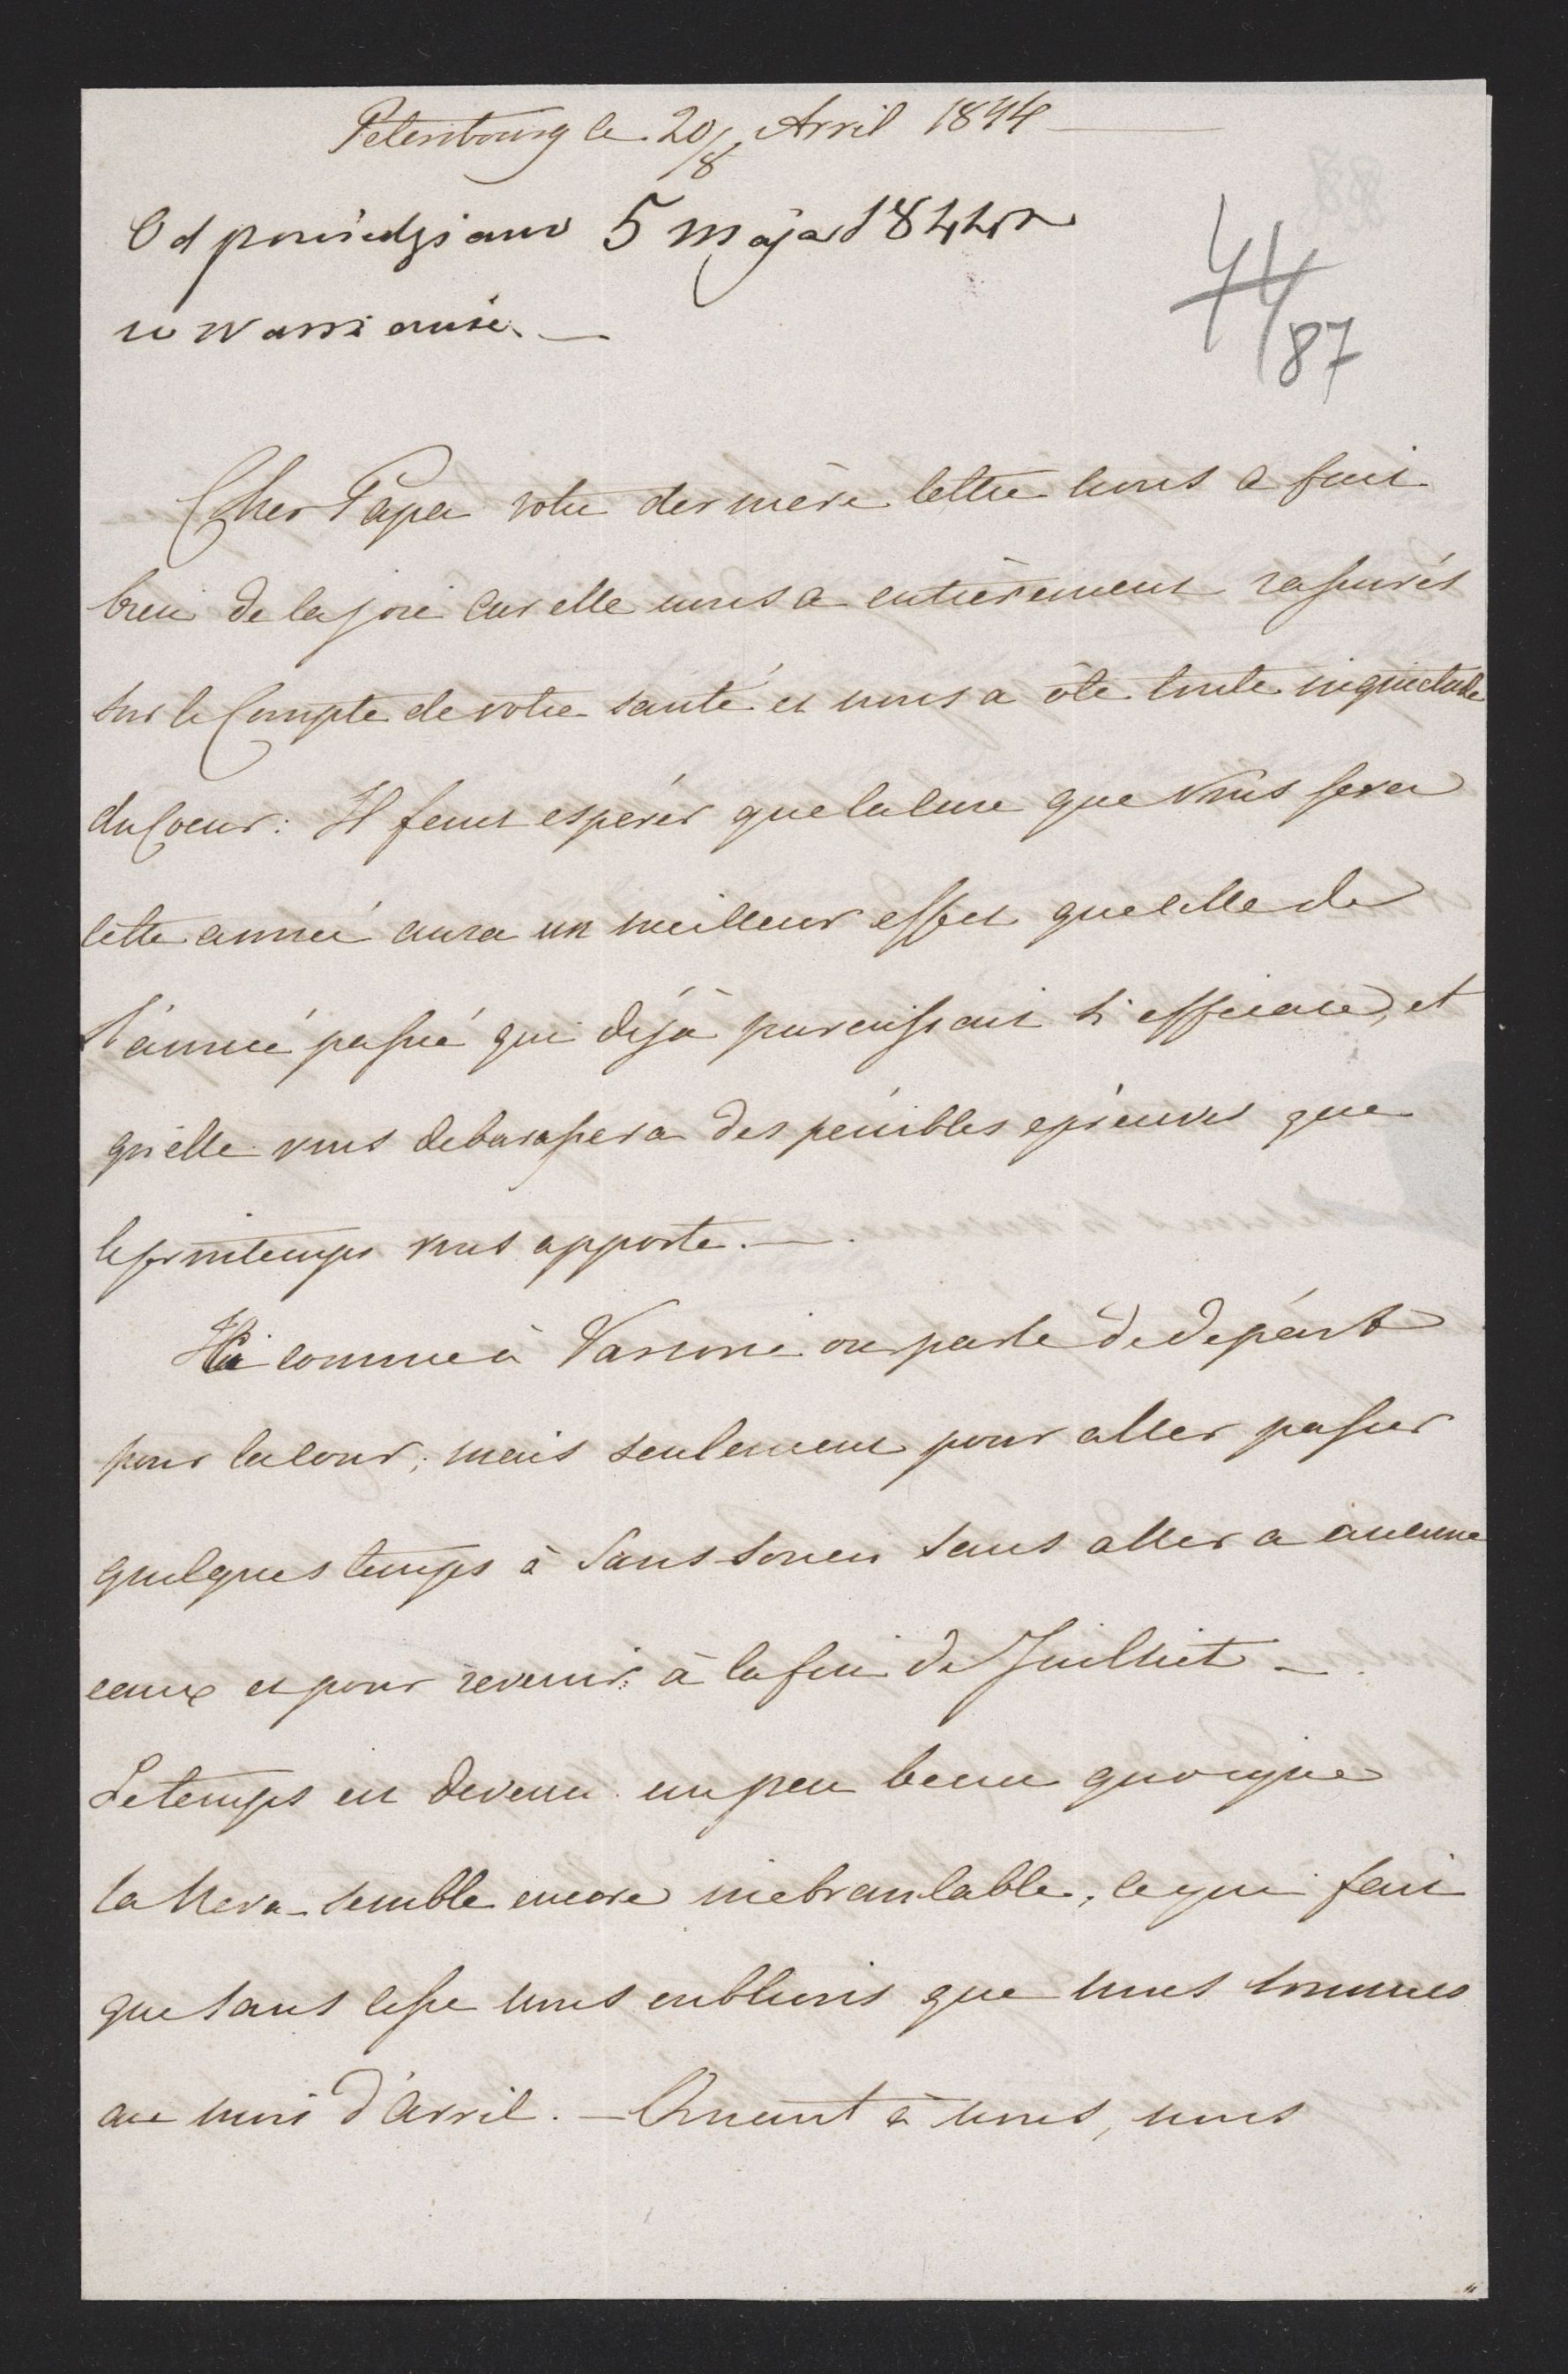 Petersbourg le 20/8 Avril 1844
Odpowiedziano 5 Maja 1844 r
w Warszawie. —
44/87
Cher Papa votre dernière lettre nous a fait
bien de la joie car elle nous a entièrement rassurés
sur le Compte de votre santé et nous a ôté toute inquietude
du Coeur: Il faut espérer que la cure que vous ferez
cette année aura un meilleur effet que celle de
l'année passée qui déjà paraissait si efficace, et
qu'elle vous debarassera des pénibles épreuves que
le printemps vous apporte. —
Ici comme à Varsovie on parle de depárt
pour la cour; mais seulement pour aller passer
quelques temps à Sans-Souci sans aller a aucune
eaux et pour revenir à la fin de Juilliet —
Le temps est devenu un peu beau quoique
la Neva semble encore inebranlable, ce qui fait
que sans cesse nous oublions que nous sommes
au mois d'Avril. — Quant à nous, nous